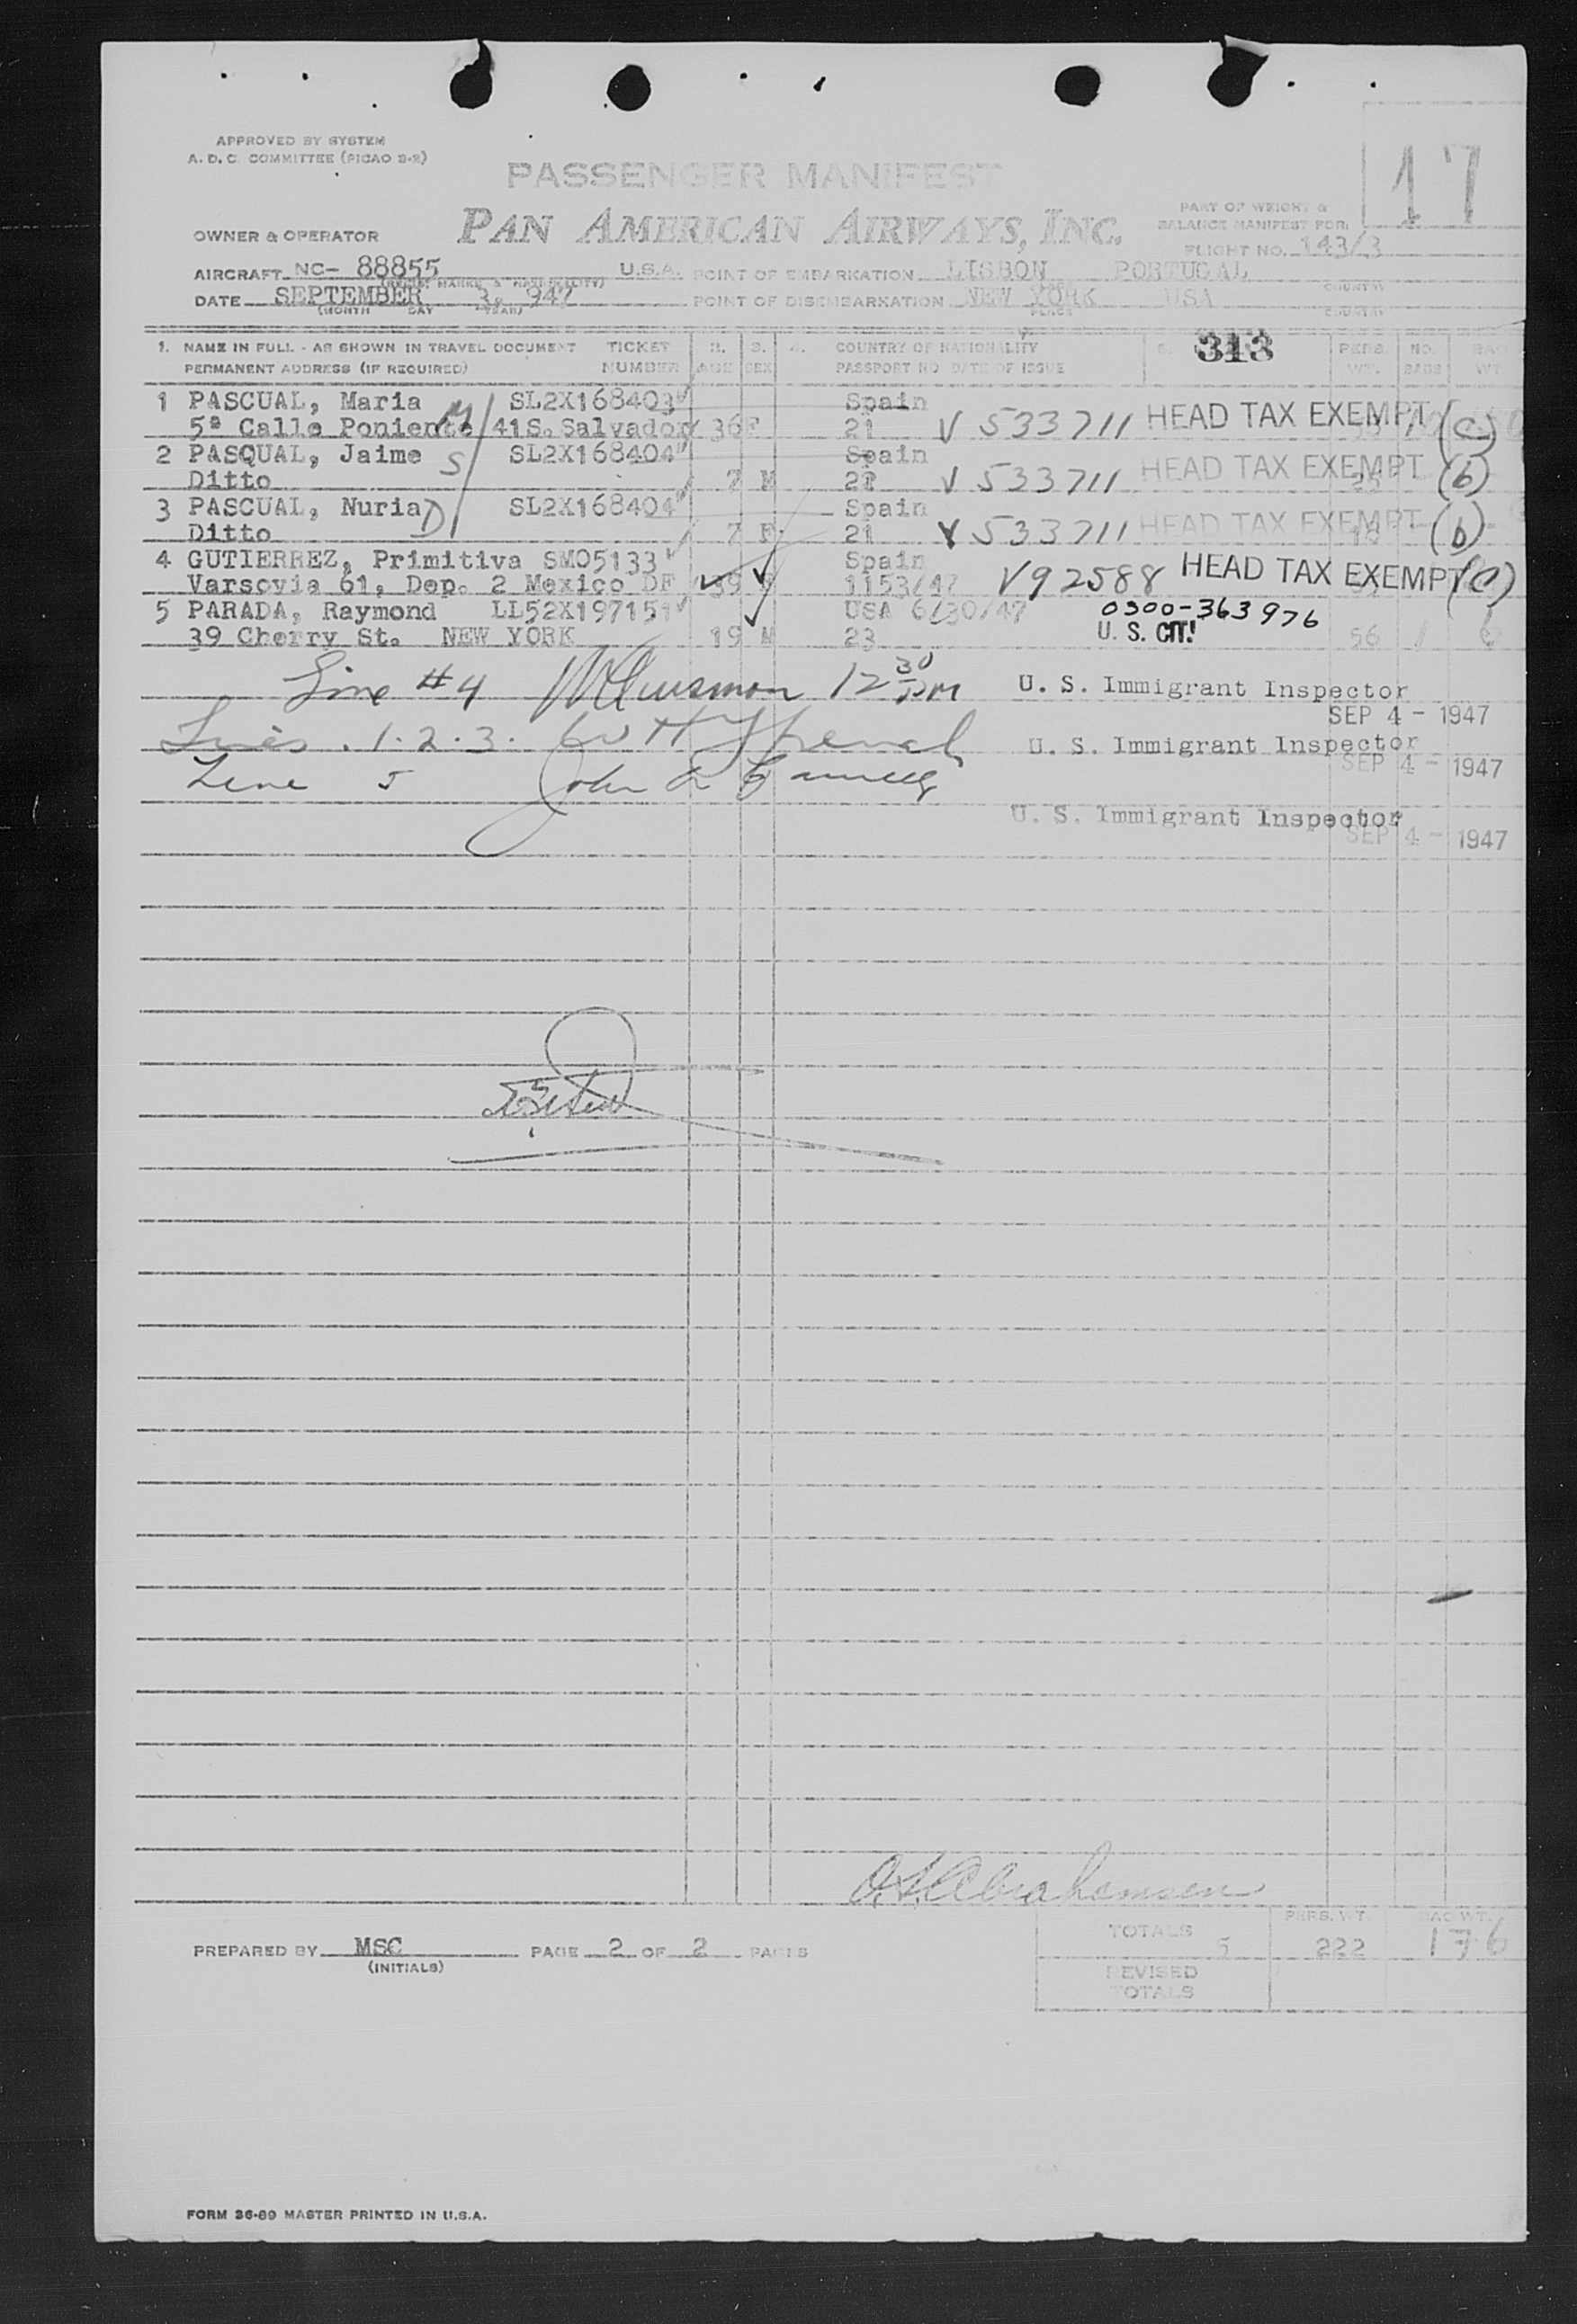 APPROVED BY SYSTEM
A. D. C. COMMITTEE (PICAO 2-2)
PASSENGER MANIFEST
17
PART OF WEIGHT &
BALANCE MANIFEST FOR
OWNER & OPERATOR PAN AMERICAN AIRWAYS, INC.
FLIGHT NO. 143/3
AIRCRAFT NC- 88855 U.S.A. POINT OF EMBARKATION LISBON PORTUGAL
DATE SEPTEMBER 3, 947 POINT OF DISEMBARKATION NEW YORK USA
(MONTH DAY YEAR) PLACE COUNTRY
1. NAME IN FULL - AS SHOWN IN TRAVEL DOCUMENT TICKET 2. 3. 4. COUNTRY OF NATIONALITY 313 PERS. NO. BAG
PERMANENT ADDRESS (IF REQUIRED) NUMBER AGE SEX PASSPORT NO DATE OF ISSUE WT. BAGS WT.
1 PASCUAL, Maria M SL2X168403 Spain HEAD TAX EXEMPT (c)
5ª Calle Poniente 41S. Salvador 36 F 21 V 533711
2 PASQUAL, Jaime S SL2X168404 Spain HEAD TAX EXEMPT (b)
Ditto 7 M V 533711
3 PASCUAL, Nuria D SL2X168404 Spain HEAD TAX EXEMPT (b)
Ditto 7 F 21 V 533711
4 GUTIERREZ, Primitiva SMO5133 Spain HEAD TAX EXEMPT (C)
Varsovia 61, Dep. 2 Mexico DF 39 1153/47 V92588
5 PARADA, Raymond LL52X197151 USA 6/30/47 0300-363976
39 Cherry St. NEW YORK 19 M 23 U. S. CIT! 56 1
Line #4 12 30 PM U. S. Immigrant Inspector
SEP 4 - 1947
Lines . 1. 2. 3. W H U. S. Immigrant Inspector
SEP 4 - 1947
Line 5 John
U. S. Immigrant Inspector
SEP 4 - 1947
Abrahamsen
PERS. WT. BAG WT.
TOTALS 5 222 176
PREPARED BY MSC PAGE 2 OF 2 PAGES
(INITIALS)
REVISED
TOTALS
FORM 36-89 MASTER PRINTED IN U.S.A.